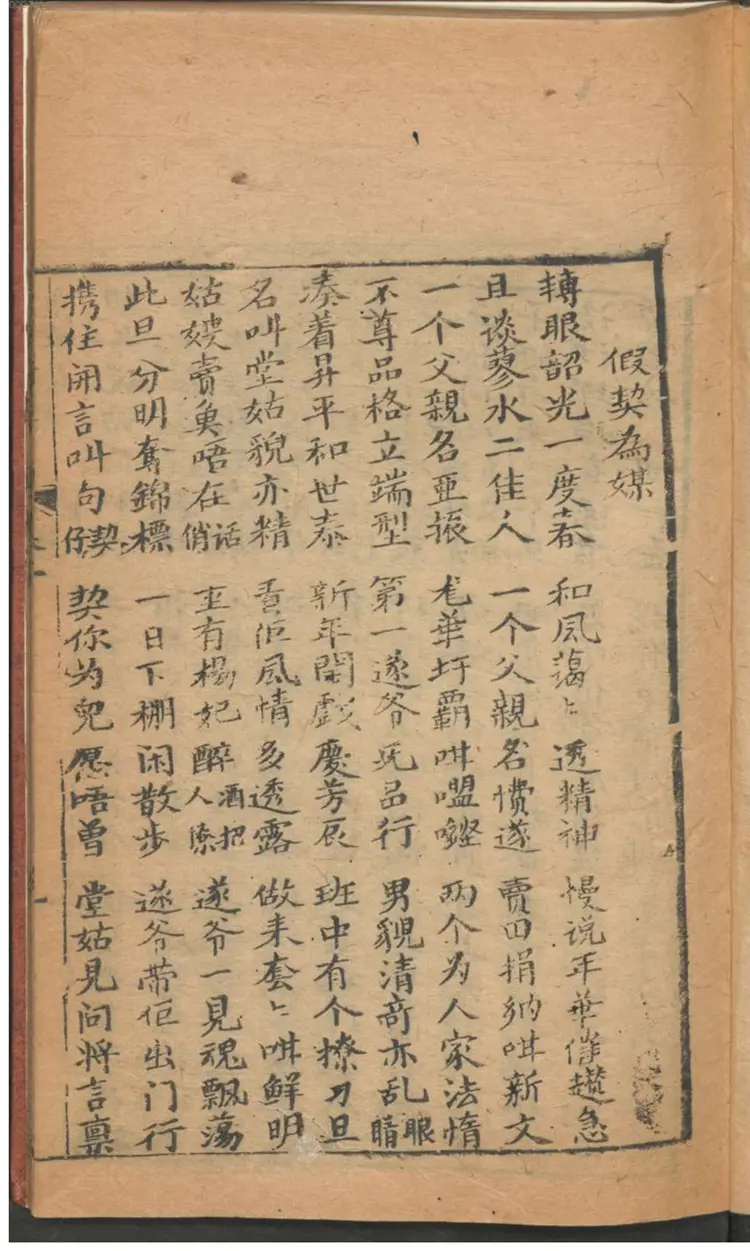 假契為媒
轉眼韶光一度春 和風蕩〻透精神 慢说年華催趲急
且谈蓼水二佳人 一个父親名慣遂 賣田捐纳咁新文
一个父親名亜振 尨華圩霸咁嘂喽 两个为人家法惰
不尊品格立端型 第一遂爷凭品行 男貌清奇亦乱眼睛
凑着昇平和世泰 新年開戯慶芳辰 班中有个撩刀旦
名叫堂姑貌亦精 賣佢風情多透露 做来套〻咁鲜明
姑嫂賣奠唔在俏话 至有楊妃醉酒把人撩 遂爷一見魂飄蕩
此旦分明奪錦標 一日下棚闲散步 遂爷带佢出门行
携住開言叫句契仔 契你为兒愿唔曾 堂姑見问将言禀